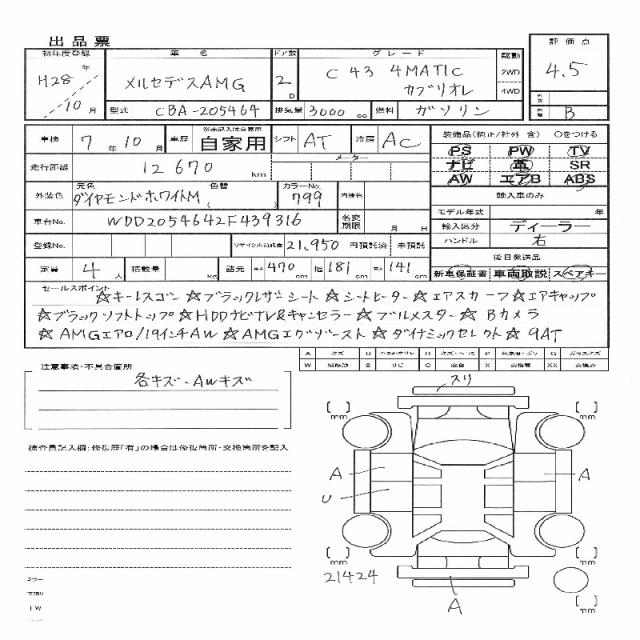 出品票
初年度登録 車名 ドア数 グレード 駆動 評価点
H28年 10月 メルセデスAMG 2D C 43 4MATIC カブリオレ 2WD 4WD 4.5
型式 CBA-205464 排気量 3000 cc 燃料 ガソリン B
車検 7年10月 車歴 ※未記入は自家用 自家用 シフト AT 冷房 AC 装備品(純正/社外 含) ○をつける
PS PW TV
走行距離 12670 km メーター ナビ 革 SR
AW エアB ABS
外装色 元色 ダイヤモンドホワイトM 色替 カラーNo. 799 内装色 輸入車のみ
モデル年式 年
車台No. WDD2054642F439316 名変期限 月 日 輸入区分 ディーラー
登録No. リサイクル預託金 21,950 円預託済 未預託 ハンドル 右
後日発送品
定員 4人 積載量 kg 諸元 長さ 470 cm 幅 181 cm 高さ 141 cm 新車保証書 車両取説 スペアキー
セールスポイント ☆キーレスゴー ☆ブラックレザーシート ☆シートヒーター ☆エアスカーフ ☆エアキャップ
☆ブラックソフトトップ ☆HDDナビTV&キャンセラー ☆ブルメスター ☆Bカメラ
☆AMGエアロ/19インチAW ☆AMGエグゾースト ☆ダイナミックセレクト ☆9AT
注意事項・不具合箇所
各キズ・AWキズ
検査員記入欄:修復歴「有」の場合は修復箇所・交換箇所を記入
スリ
[ ] mm [ ] mm
A A
U
[ ] mm [ ] mm
21424
A
[ ] mm